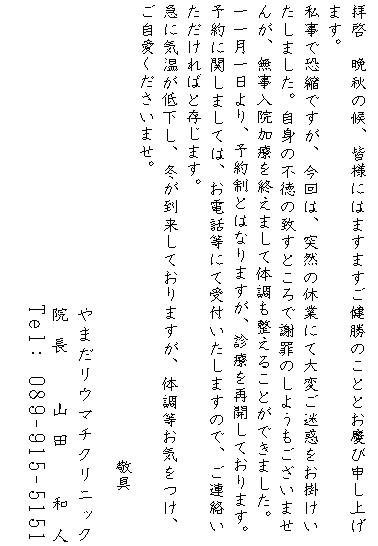 拝啓　晩秋の候、皆様にはますますご健勝のこととお慶び申し上げ
ます。
私事で恐縮ですが、今回は、突然の休業にて大変ご迷惑をお掛けい
たしました。自身の不徳の致すところで謝罪のしようもございませ
んが、無事入院加療を終えまして体調も整えることができました。
一一月一日より、予約制とはなりますが、診療を再開しております。
予約に関しましては、お電話等にて受付いたしますので、ご連絡い
ただければと存じます。
急に気温が低下し、冬が到来しておりますが、体調等お気をつけ、
ご自愛くださいませ。
敬具
やまだリウマチクリニック
院長　山田　和人
Tel: 089-915-5151